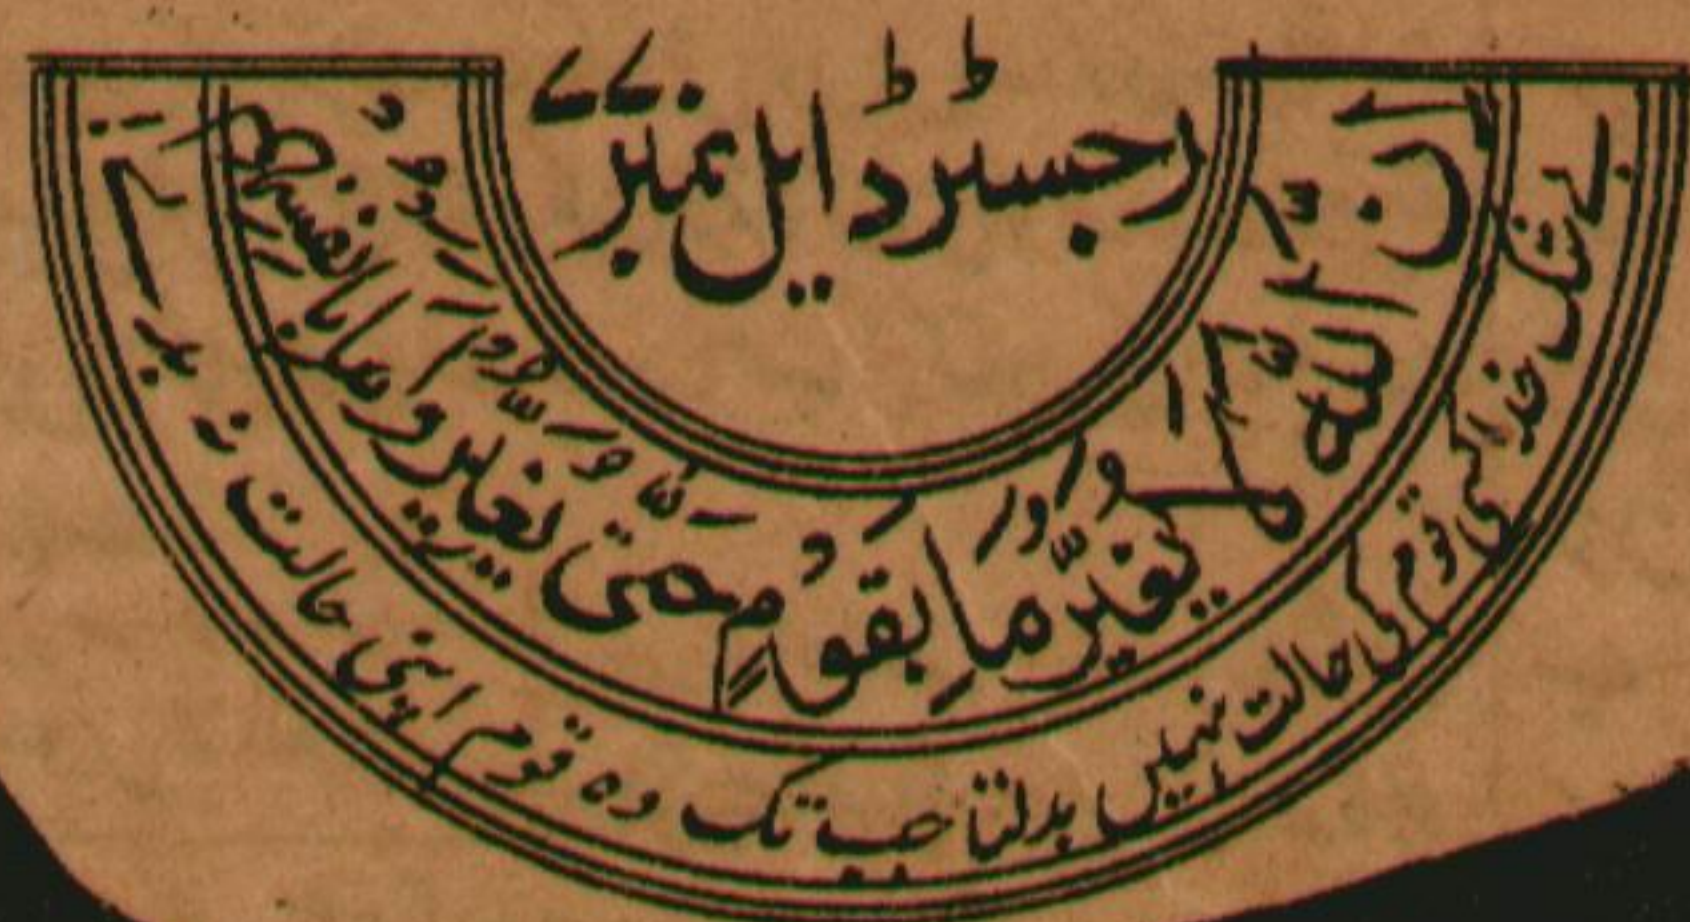 رجسٹرڈ ایل نمبر
اِنَّ اللّٰهَ لَا يُغَيِّرُ مَا بِقَوْمٍ حَتّٰى يُغَيِّرُوْا مَا بِاَنْفُسِهِمْ
بے شک خدا کسی قوم کی حالت نہیں بدلتا جب تک وہ قوم اپنی حالت نہ بدلے